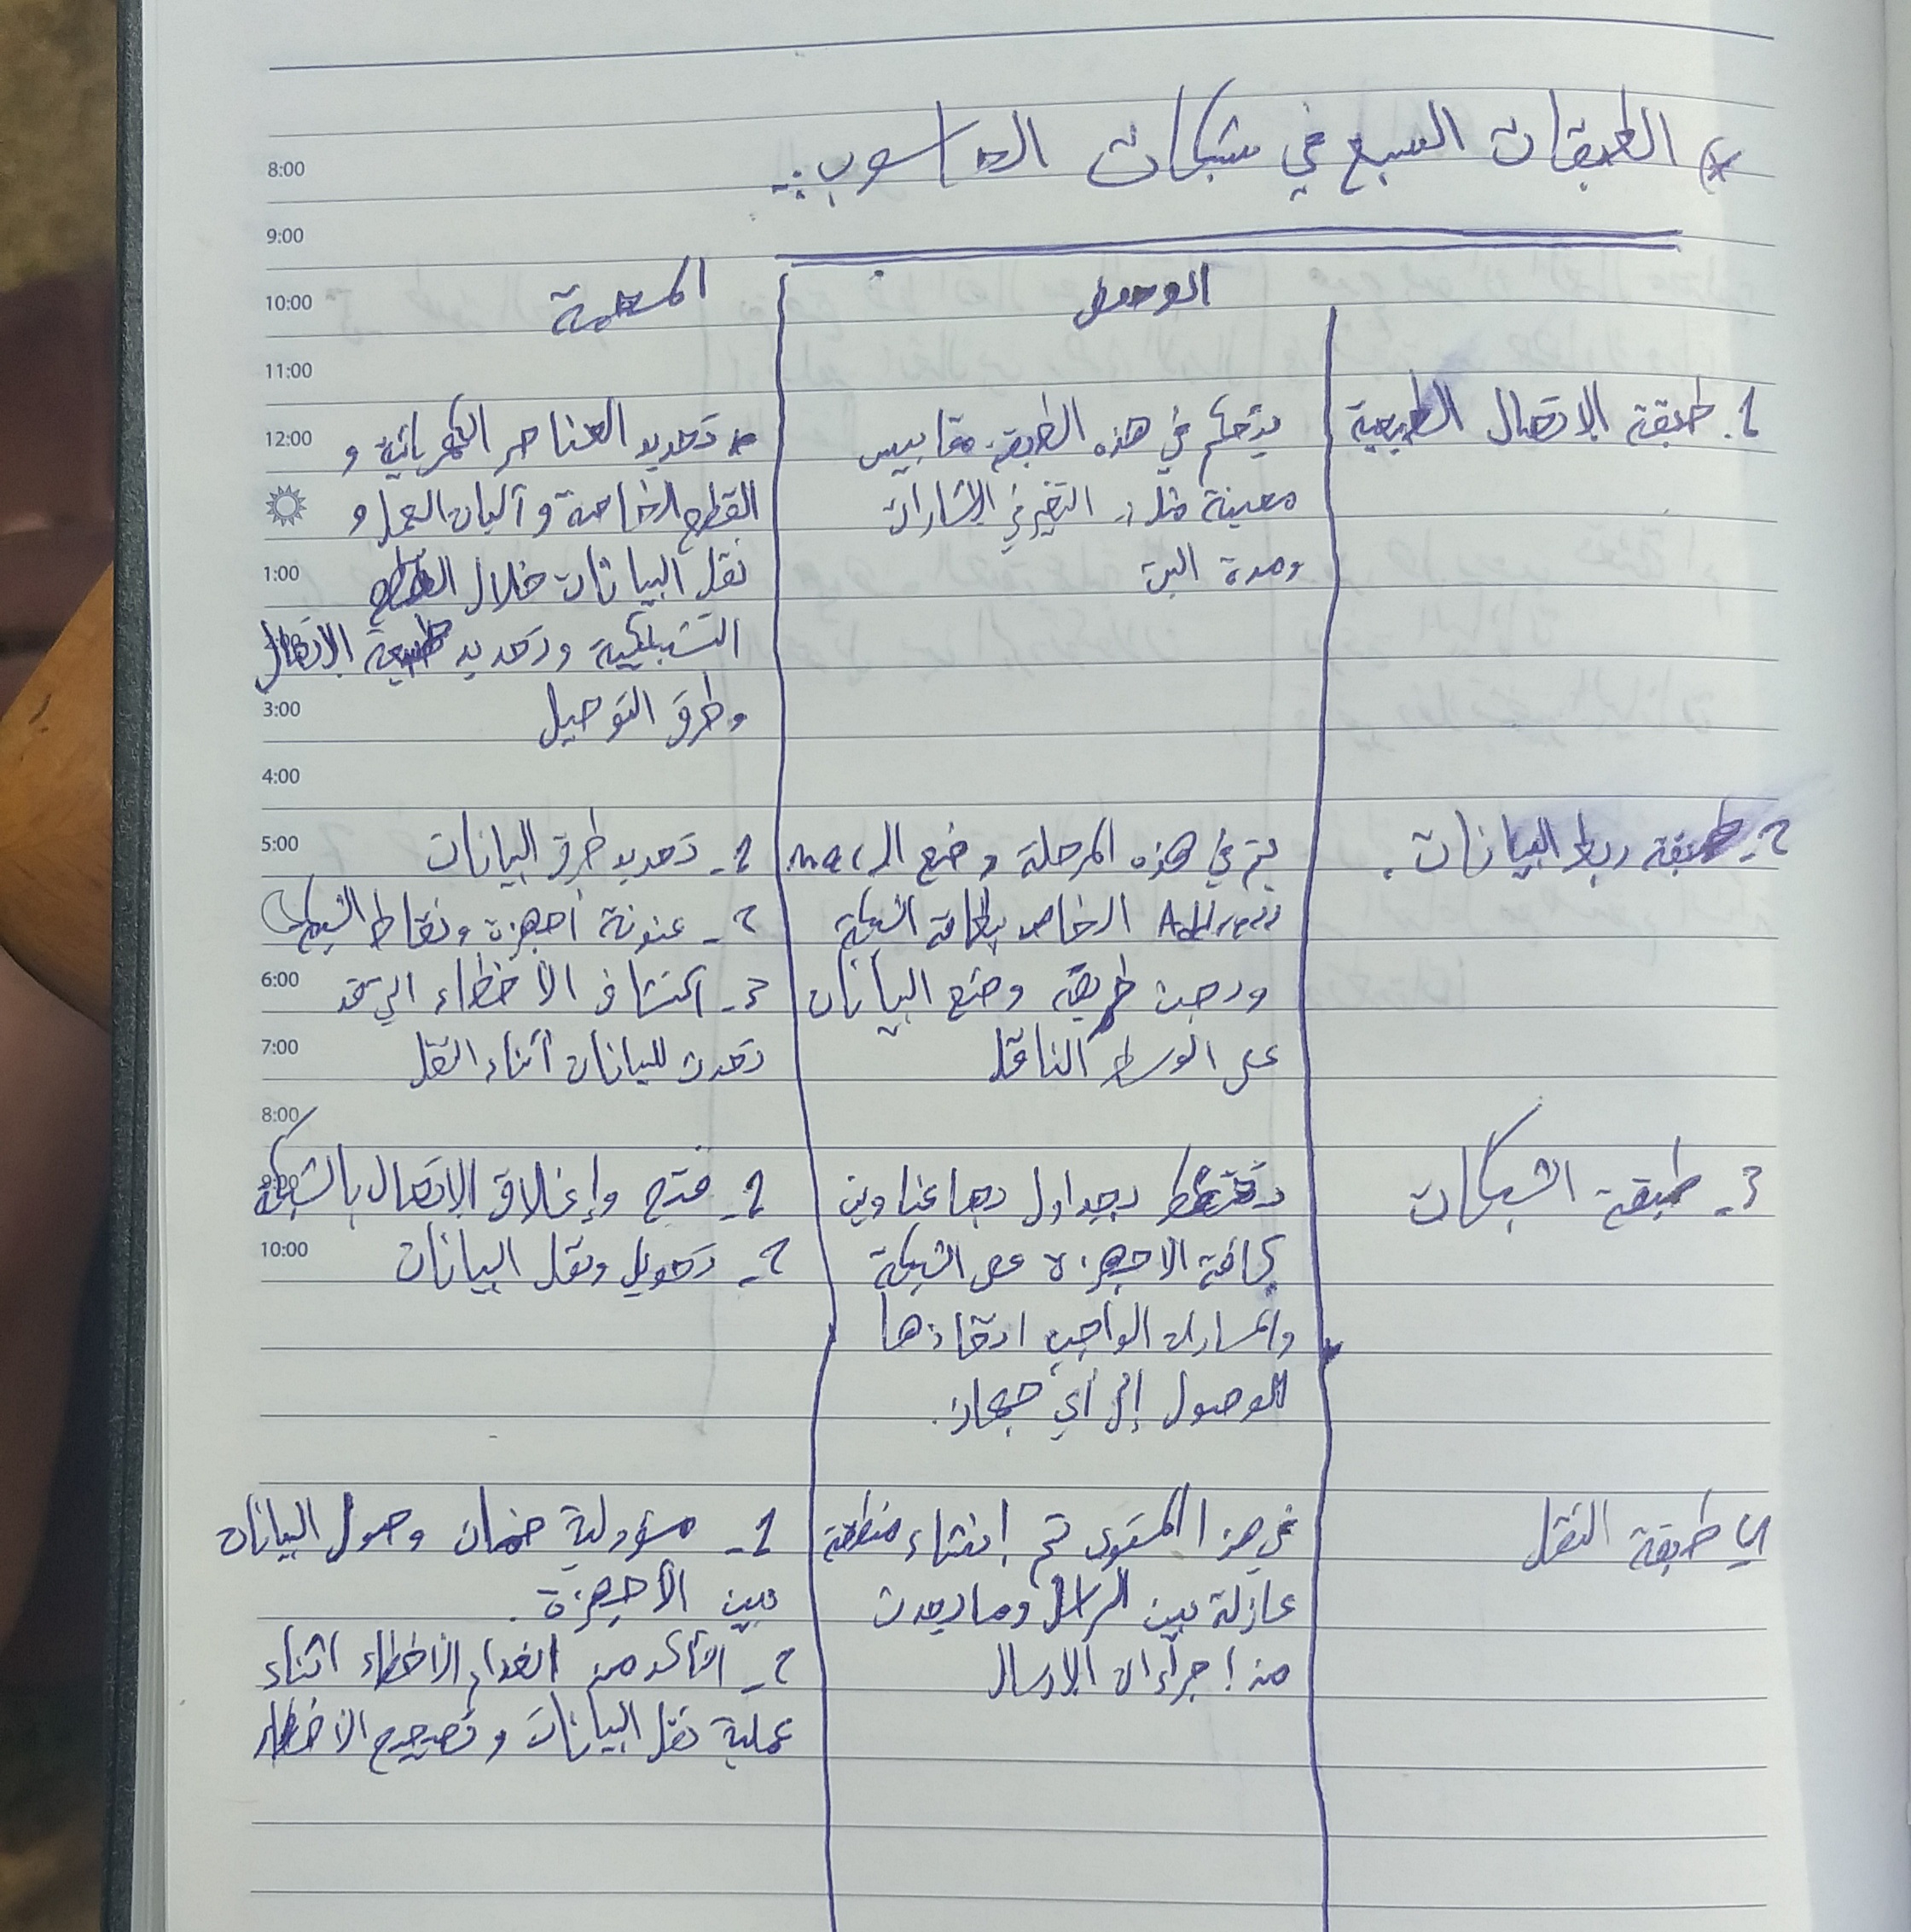 * الطبقات السبع في شبكات الحاسوب :-
الوصف
المهمة
1. طبقة الاتصال الطبيعية
يتحكم في هذه الطبقة مقاييس
معينة مثل :- التغير في الإشارات
ومدة البث
تحديد العناصر الكهربائية و
القطع الخاصة وآليات العمل و
نقل البيانات خلال القطع
التشبيكية وتحديد طبيعة الاتصال
وطرق التوصيل
2- طبقة ربط البيانات .
يتم في هذه المرحلة وضع الـ mac
Address الخاص بطاقة الشبكة
وطريقة وضع البيانات
على الوسط الناقل
1- تحديد طرق البيانات
2- عنونة أجهزة ونقاط الشبكة
3- اكتشاف الأخطاء التي قد
تحدث للبيانات أثناء النقل
3- طبقة الشبكات
تحتفظ بجداول بها عناوين
كافة الاجهزة على الشبكة
والمسارات الواجب اتخاذها
للوصول إلى أي جهاز .
1- فتح وإغلاق الاتصال بالشبكة
2- تحويل ونقل البيانات
4 طبقة النقل
في هذا المستوى تم إنشاء منطقة
عازلة بين وما يحدث
من إجراءات الارسال
1- مسؤولية ضمان وصول البيانات
بين الأجهزة .
2- التأكد من انعدام الأخطاء اثناء
عملية نقل البيانات وتصحيح الاخطاء
8:00
9:00
10:00
11:00
12:00
1:00
3:00
4:00
5:00
6:00
7:00
8:00
10:00